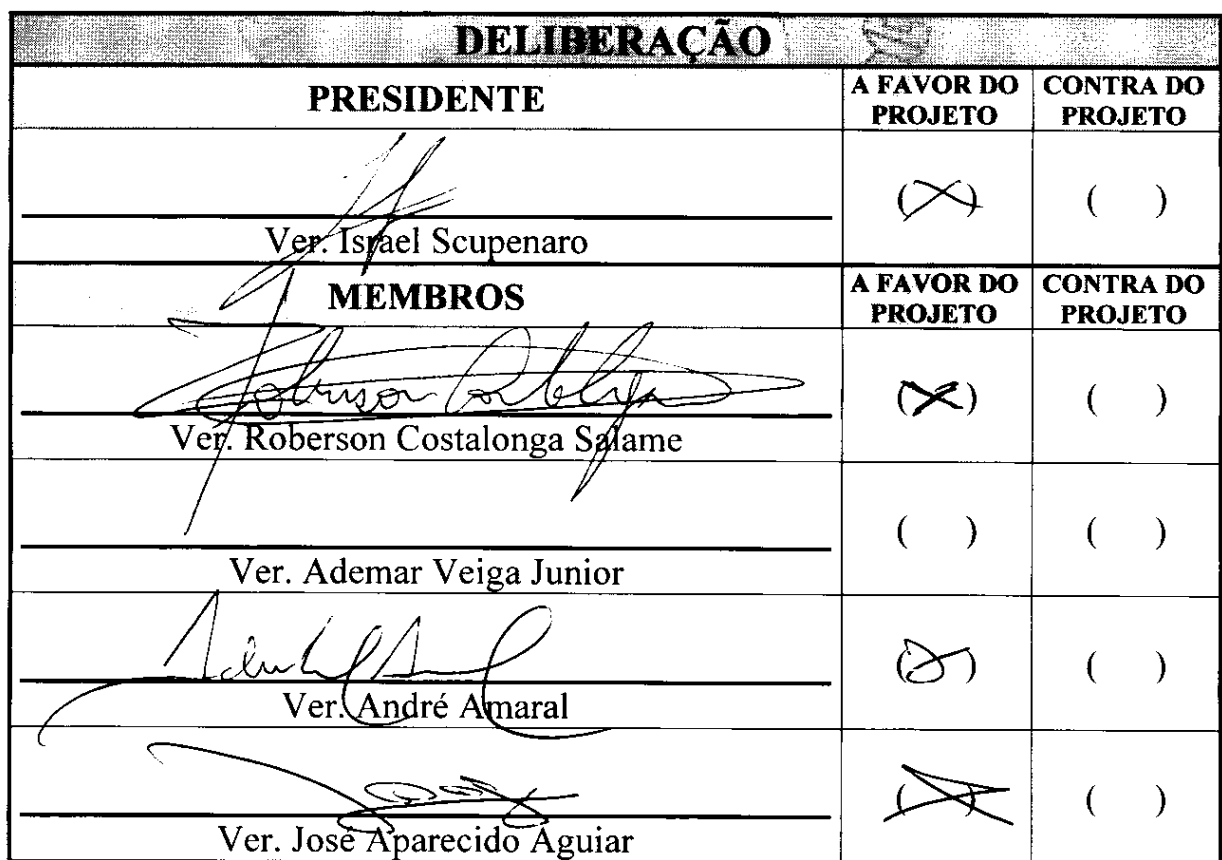 DELIBERAÇÃO
PRESIDENTE
A FAVOR DO PROJETO
CONTRA DO PROJETO
(X)
( )
Ver. Israel Scupenaro
MEMBROS
A FAVOR DO PROJETO
CONTRA DO PROJETO
(X)
( )
Ver. Roberson Costalonga Salame
( )
( )
Ver. Ademar Veiga Junior
( )
Ver. André Amaral
(X)
( )
Ver. José Aparecido Aguiar